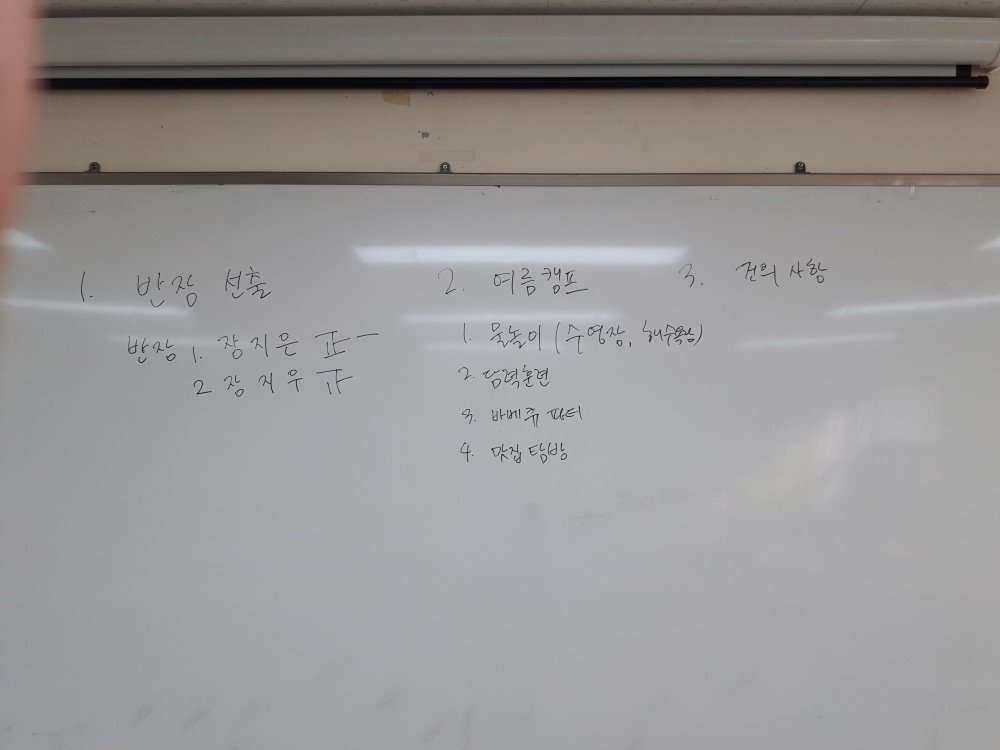 1. 반장 선출
반장 1. 장지은 正一
2 장지우 正
2. 여름캠프
1. 물놀이 (수영장, 해수욕장)
2. 담력훈련
3. 바베큐 파티
4. 맛집 탐방
3. 건의 사항